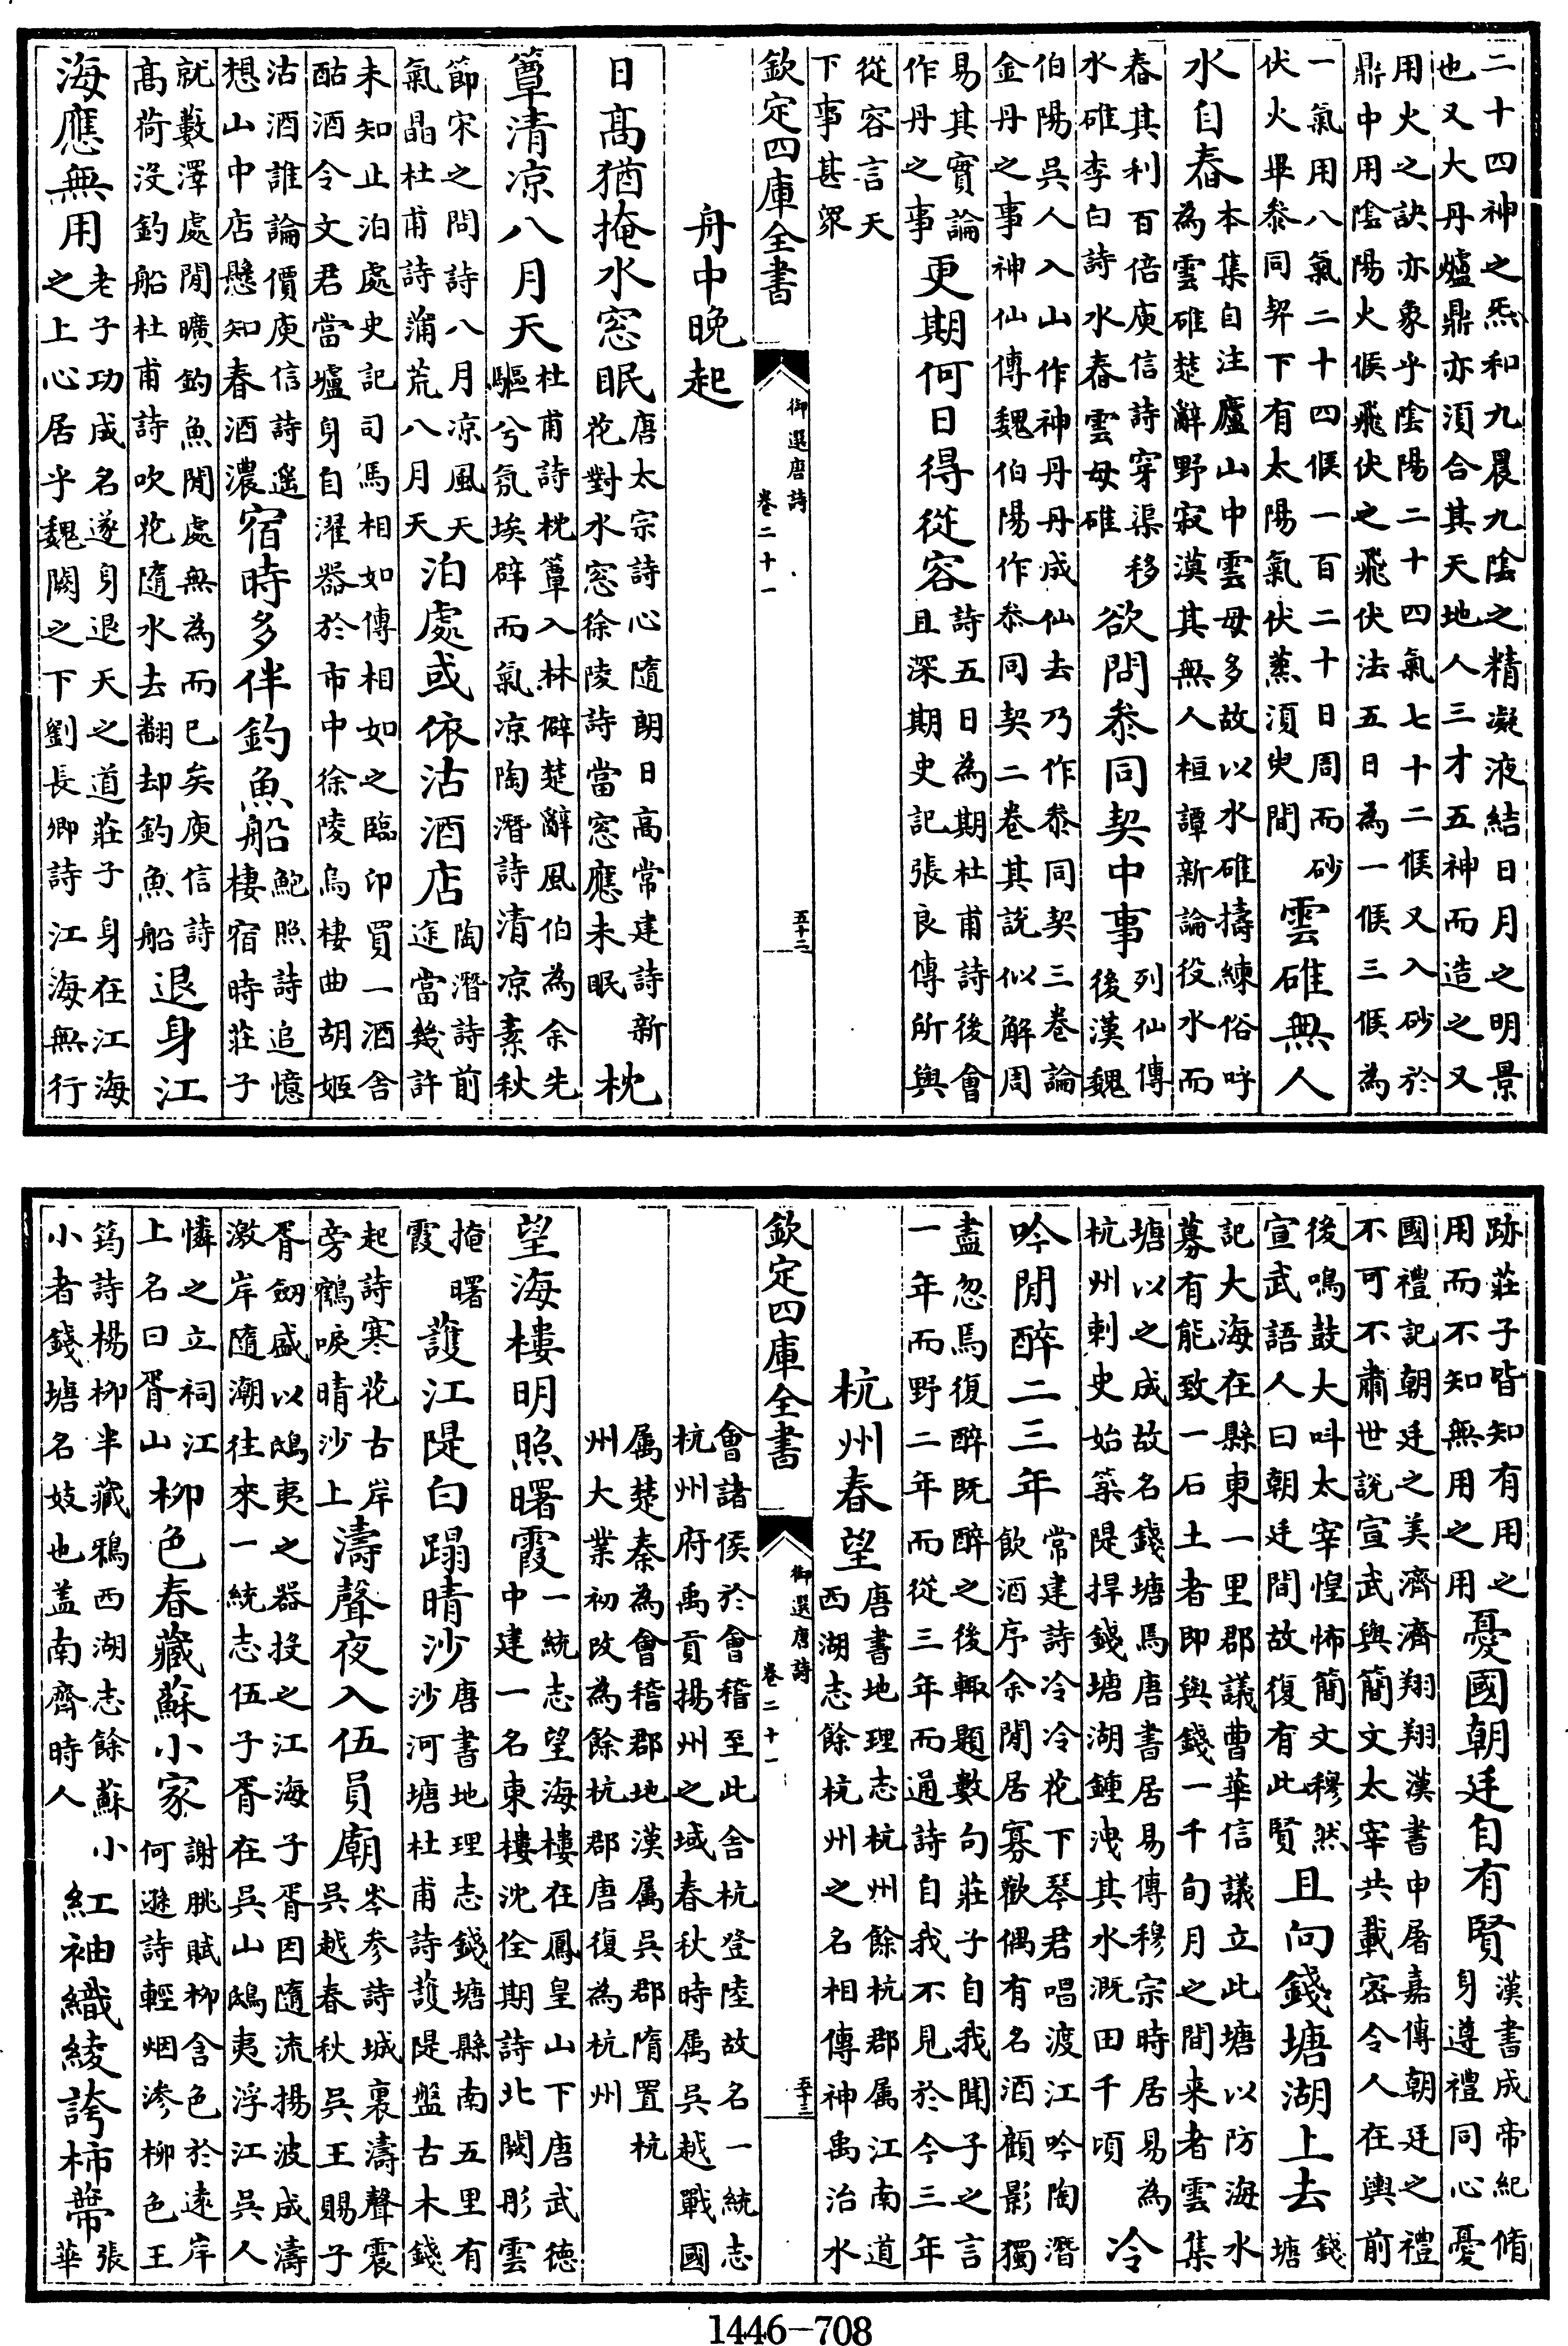 二十四神之炁和九晨九陰之精凝液結日月之明景
也又大丹爐鼎亦須合其天地人三才五神而造之又
用火之訣亦象乎陰陽二十四氣七十二候又入砂於
鼎中用陰陽火候飛伏之飛伏法五日為一候三候為
一氣用八氣二十四候一百二十日周而砂
伏火畢叅同契下有太陽氣伏蒸須臾間
雲碓無人
水自舂
本集自注廬山中雲母多故以水碓擣練俗呼
為雲碓楚辭野寂漠其無人桓譚新論役水而
舂其利百倍庾信詩穿渠移
水碓李白詩水舂雲母碓
欲問叅同契中事
列仙傳
後漢魏
伯陽吳人入山作神丹丹成仙去乃作叅同契三卷論
金丹之事神仙傳魏伯陽作叅同契二卷其說似解周
易其實論
作丹之事
更期何日得從容
詩五日為期杜甫詩後會
且深期史記張良傳所與
從容言天
下事甚眾
欽定四庫全書
御選唐詩
卷二十一
五十二
舟中晚起
日髙猶掩水窓眠
唐太宗詩心隨朗日高常建詩新
花對水窓徐陵詩當窓應未眠
枕
簟清凉八月天
杜甫詩枕簟入林僻楚辭風伯為余先
驅兮氛埃辟而氣凉陶潛詩清凉素秋
節宋之問詩八月凉風天
氣晶杜甫詩蒲荒八月天
泊處或依沽酒店
陶潛詩前
途當幾許
未知止泊處史記司馬相如傳相如之臨卭買一酒舍
酤酒令文君當壚身自濯器於市中徐陵烏棲曲胡姬
沽酒誰論價庾信詩遥
想山中店懸知春酒濃
宿時多伴釣魚船
鮑照詩追憶
棲宿時莊子
就藪澤處閒曠釣魚閒處無為而已矣庾信詩
髙荷没釣船杜甫詩吹花隨水去翻却釣魚船
退身江
海應無用
老子功成名遂身退天之道莊子身在江海
之上心居乎魏闕之下劉長卿詩江海無行
跡莊子皆知有用之
用而不知無用之用
憂國朝廷自有賢
漢書成帝紀脩
身遵禮同心憂
國禮記朝廷之美濟濟翔翔漢書申屠嘉傳朝廷之禮
不可不肅世說宣武與簡文太宰共載密令人在輿前
後鳴鼓大呌太宰惶怖簡文穆然
宣武語人曰朝廷間故復有此賢
且向錢塘湖上去
錢
塘
記大海在縣東一里郡議曹華信議立此塘以防海水
募有能致一石土者即與錢一千旬月之間来者雲集
塘以之成故名錢塘馬唐書居易傳穆宗時居易為
杭州刺史始築隄捍錢塘湖鍾洩其水溉田千頃
冷
吟閒醉二三年
常建詩冷冷花下琴君唱渡江吟陶潛
飲酒序余閒居寡歡偶有名酒顧影獨
盡忽焉復醉既醉之後輒題數句莊子自我聞子之言
一年而野二年而從三年而通詩自我不見於今三年
杭州春望
唐書地理志杭州餘杭郡属江南道
西湖志餘杭州之名相傳神禹治水
欽定四庫全書
御選唐詩
卷二十一
五十三
會諸侯於會稽至此舍杭登陸故名一統志
杭州府禹貢揚州之域春秋時属吳越戰國
属楚秦為會稽郡地漢属吳郡隋置杭
州大業初改為餘杭郡唐復為杭州
望海樓明照曙霞
一統志望海樓在鳳皇山下唐武德
中建一名東樓沈佺期詩北闕彤雲
掩曙
霞
護江隄白蹋晴沙
唐書地理志錢塘縣南五里有
沙河塘杜甫詩護隄盤古木錢
起詩寒花古岸
旁鶴唳晴沙上
濤聲夜入伍員廟
岑參詩城裏濤聲震
吳越春秋吳王賜子
胥劒盛以鴟夷之器投之江海子胥因隨流揚波成濤
激岸隨潮往來一統志伍子胥在吳山鴟夷浮江吳人
憐之立祠江
上名曰胥山
柳色春藏蘇小家
謝朓賦柳含色於逺岸
何遜詩輕烟滲柳色王
筠詩楊柳半藏鴉西湖志餘蘇小
小者錢塘名妓也盖南齊時人
紅袖織綾誇柿蔕
張
華
1446-708